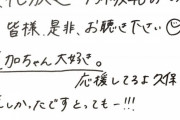 皆様、是非、お聴き下さい☺
加ちゃん大好き。
応援してるよ久保
しかったですとってもー!!!